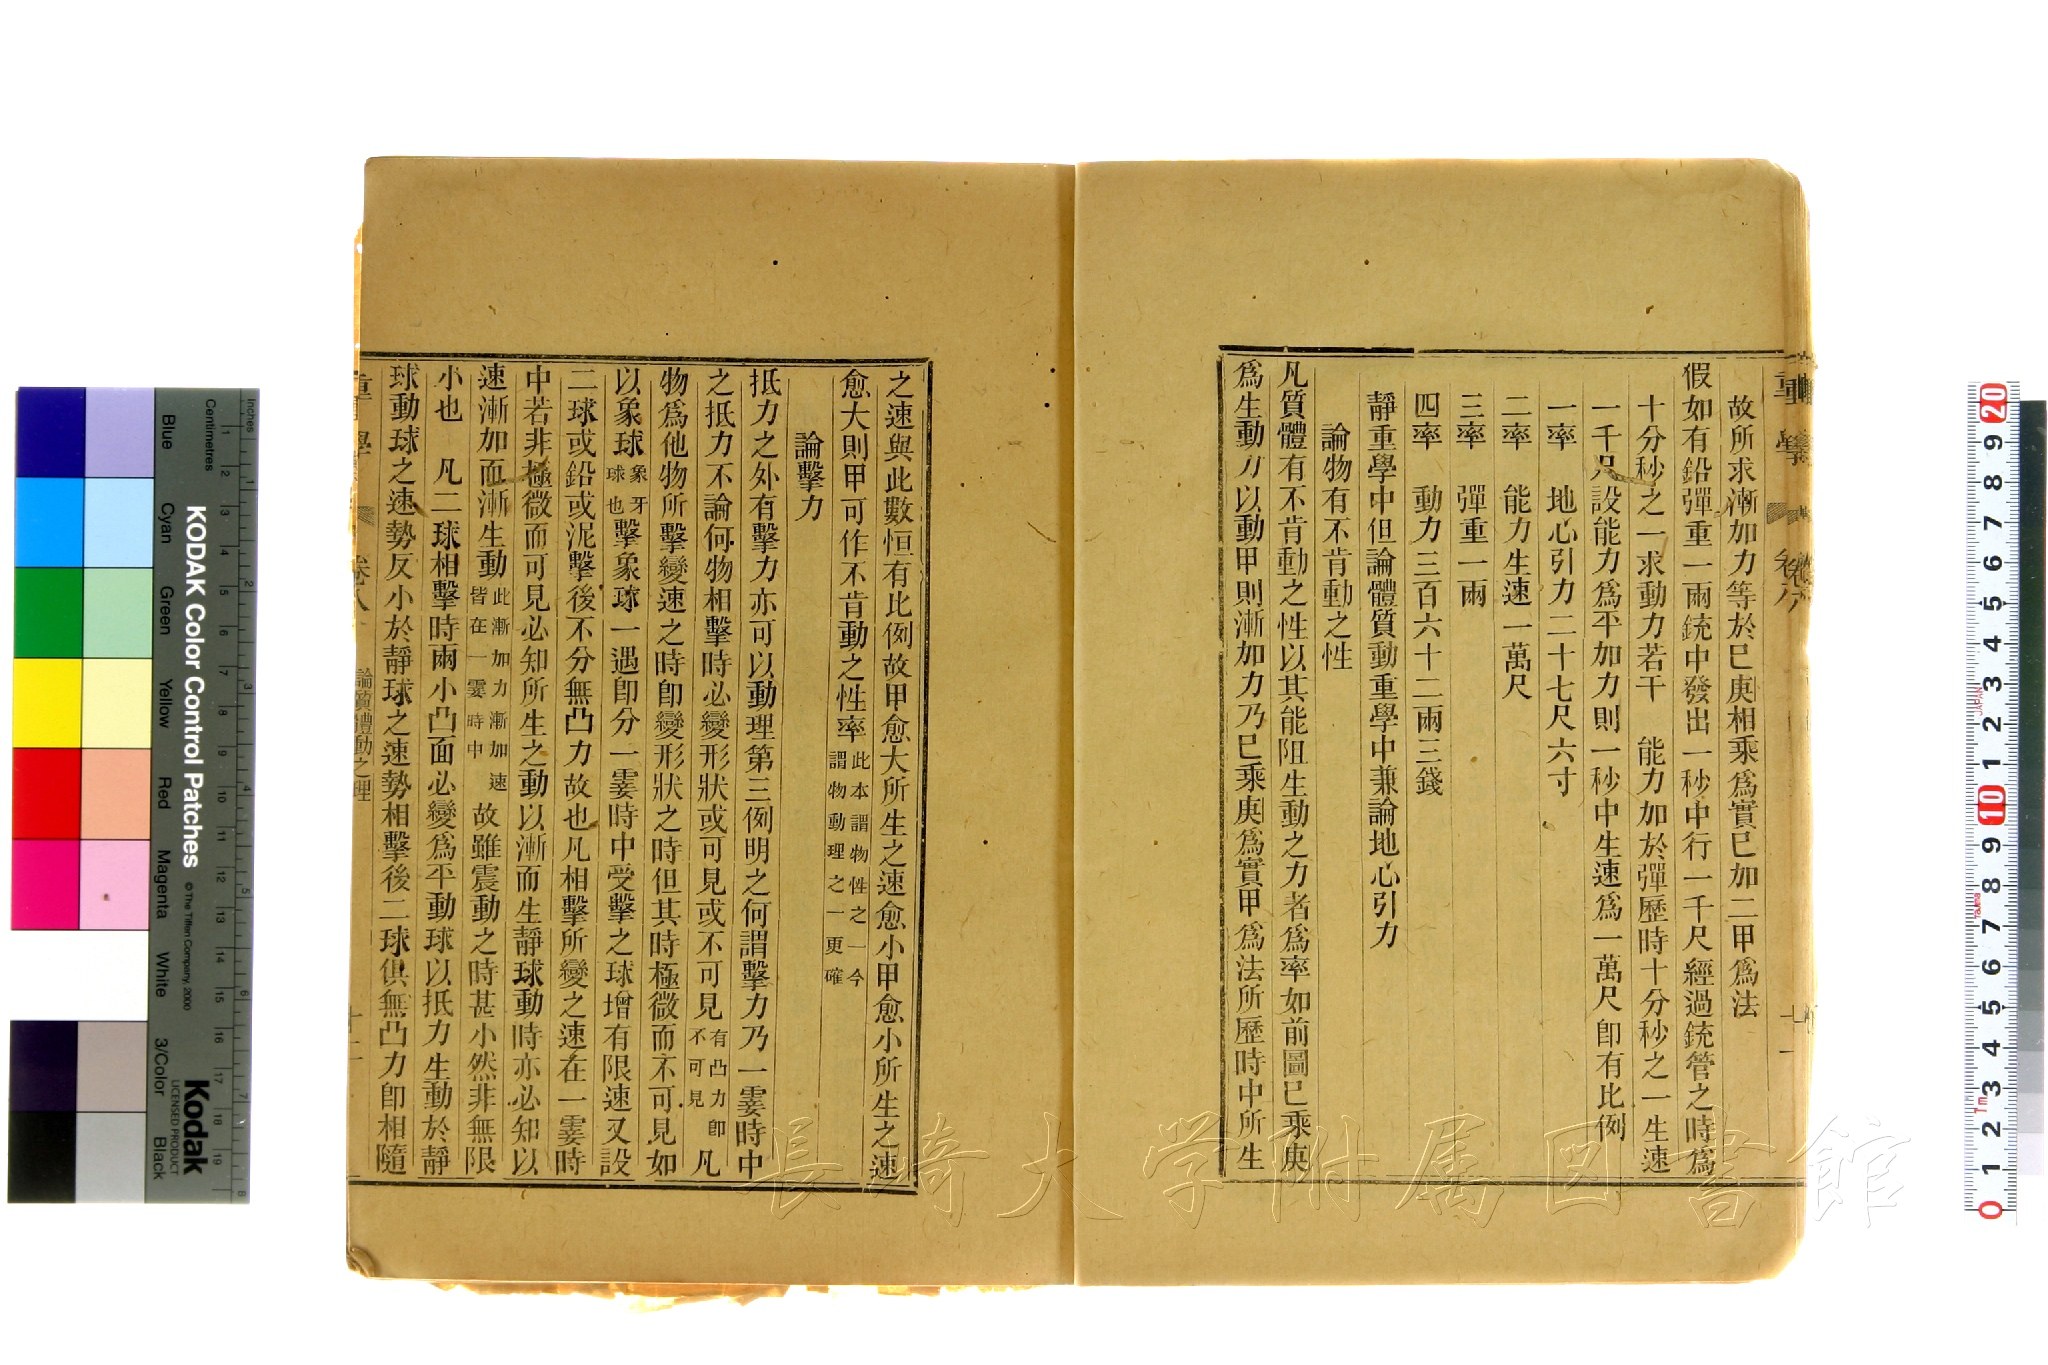 重學
卷八
十一
故所求漸加力等於巳庚相乘爲實巳加二甲爲法
假如有鉛彈重一兩銃中發出一秒中行一千尺經過銃管之時爲
十分秒之一求動力若干　能力加於彈歷時十分秒之一生速
一千尺設能力爲平加力則一秒中生速爲一萬尺卽有比例
一率　地心引力二十七尺六寸
二率　能力生速一萬尺
三率　彈重一兩
四率　動力三百六十二兩三錢
靜重學中但論體質動重學中兼論地心引力
論物有不肯動之性
凡質體有不肯動之性以其能阻生動之力者爲率如前圖巳乘庚
爲生動力以動甲則漸加力乃巳乘庚爲實甲爲法所歷時中所生
之速與此數恒有比例故甲愈大所生之速愈小甲愈小所生之速
愈大則甲可作不肯動之性率此本謂物性之一今謂物動理之一更確
論擊力
抵力之外有擊力亦可以動理第三例明之何謂擊力乃一霎時中
之抵力不論何物相擊時必變形狀或可見或不可見有凸力卽不可見凡
物爲他物所擊變速之時卽變形狀之時但其時極微而不可見如
以象球象牙球也擊象球一遇卽分一霎時中受擊之球增有限速又設
二球或鉛或泥擊後不分無凸力故也凡相擊所變之速在一霎時
中若非極微而可見必知所生之動以漸而生靜球動時亦必知以
速漸加而漸生動此漸加力漸加速皆在一霎時中故雖震動之時甚小然非無限
小也　凡二球相擊時兩小凸面必變爲平動球以抵力生動於靜
球動球之速勢反小於靜球之速勢相擊後二球俱無凸力卽相隨
重學
卷八
論質體動之理
十二
長崎大学附属図書館
KODAK Color Control Patches
© The Tiffen Company, 2000
Kodak
LICENSED PRODUCT
Inches
Centimetres
Blue
Cyan
Green
Yellow
Red
Magenta
White
3/Color
Black
JAPAN
Tajima
7m